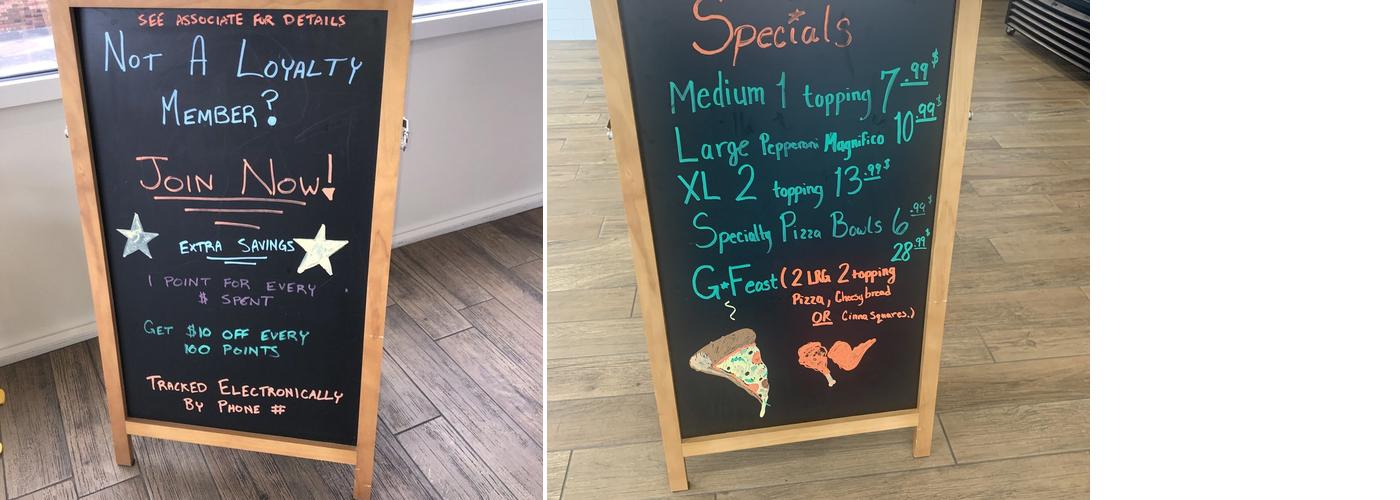 SEE ASSOCIATE FOR DETAILS
NOT A LOYALTY
MEMBER?
JOIN NOW!
EXTRA SAVINGS
1 POINT FOR EVERY
$ SPENT
GET $10 OFF EVERY
100 POINTS
TRACKED ELECTRONICALLY
BY PHONE #
Specials
Medium 1 topping 7.99$
Large Pepperoni Magnifico 10.99$
XL 2 topping 13.99$
Specialty Pizza Bowls 6.99$
28.99$
G*Feast (2 LRG 2 topping
Pizza, Cheesybread
OR Cinna Squares.)